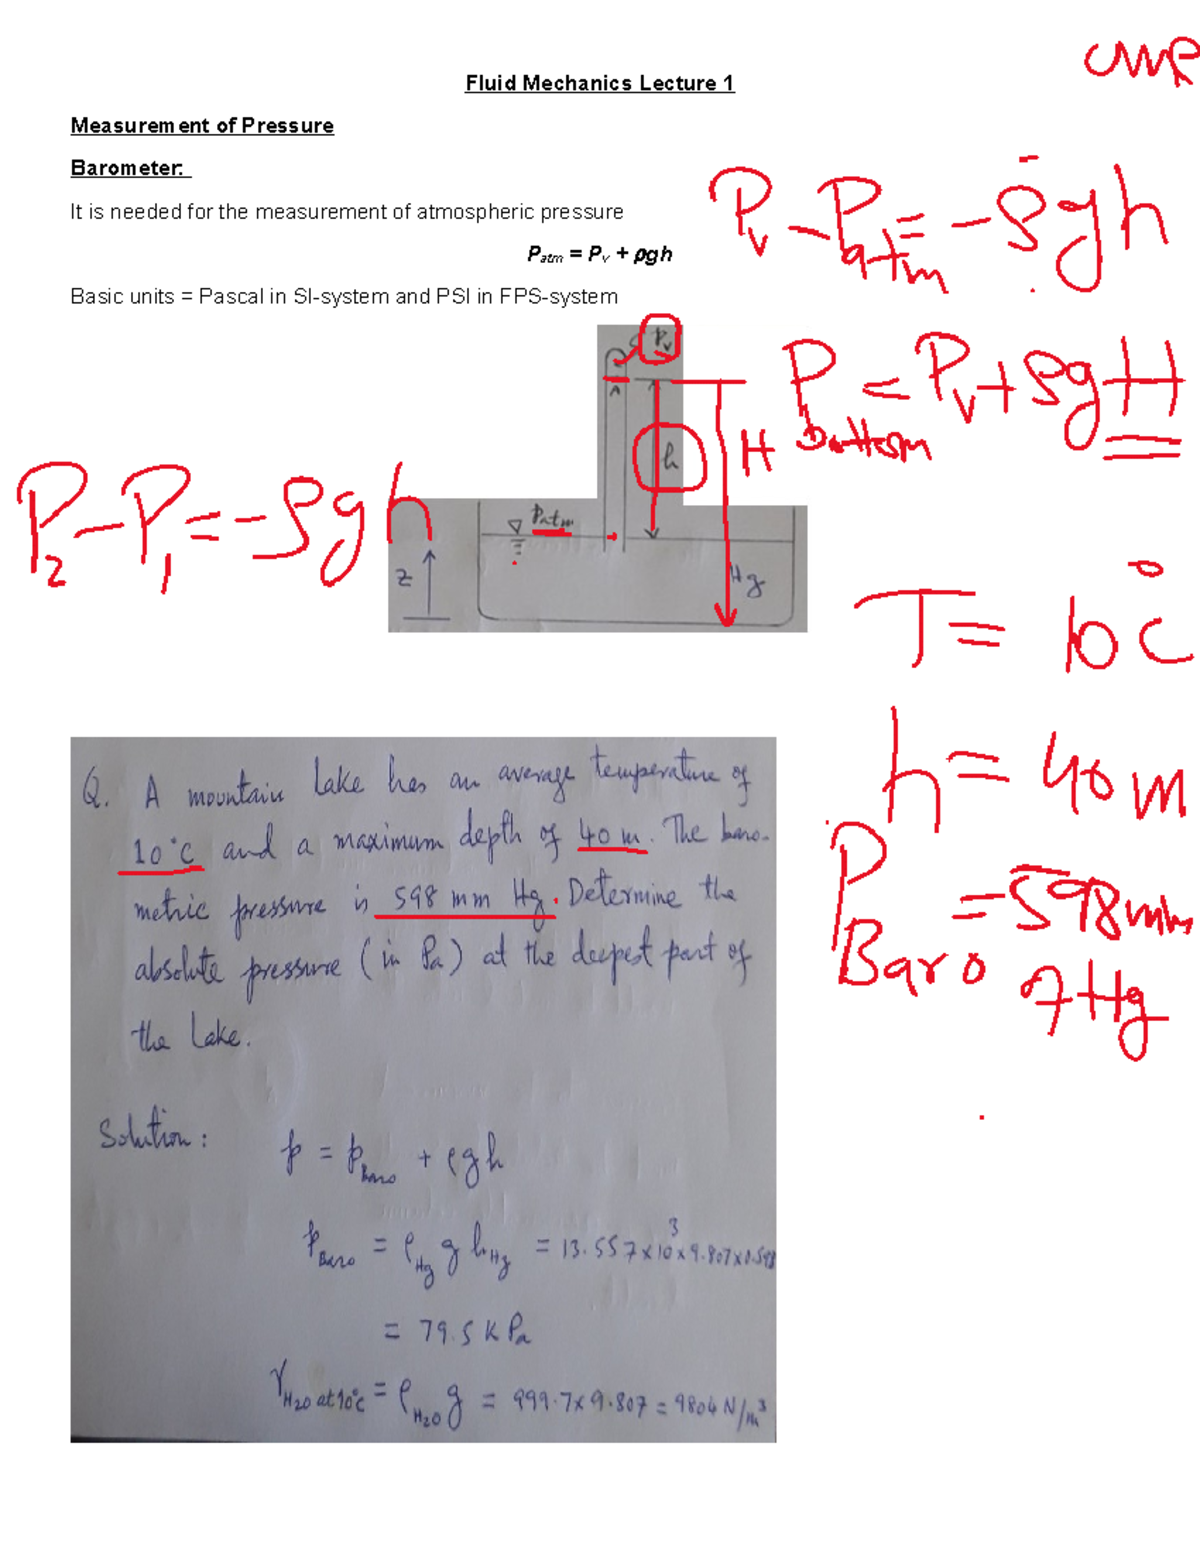 UMR
Fluid Mechanics Lecture 1
Measurement of Pressure
Barometer:
It is needed for the measurement of atmospheric pressure
Patm = Pv + ρgh
Basic units = Pascal in SI-system and PSI in FPS-system
Pv - Patm = -ρgh
Pv
h
H
Patm
Z
Hg
Pbottom = Pv + ρgH
P2 - P1 = -ρgh
T = 10°C
h = 40 m
PBaro = 598 mm
Hg
Q. A mountain Lake has an average temperature of
10°C and a maximum depth of 40 m. The baro-
metric pressure is 598 mm Hg. Determine the
absolute pressure (in Pa) at the deepest part of
the Lake.
Solution: p = pBaro + ρgh
pBaro = ρHg g hHg = 13.557 x 10^3 x 9.807 x 0.598
= 79.5 K Pa
γH2O at 10°C = ρH2O g = 999.7 x 9.807 = 9804 N/m^3